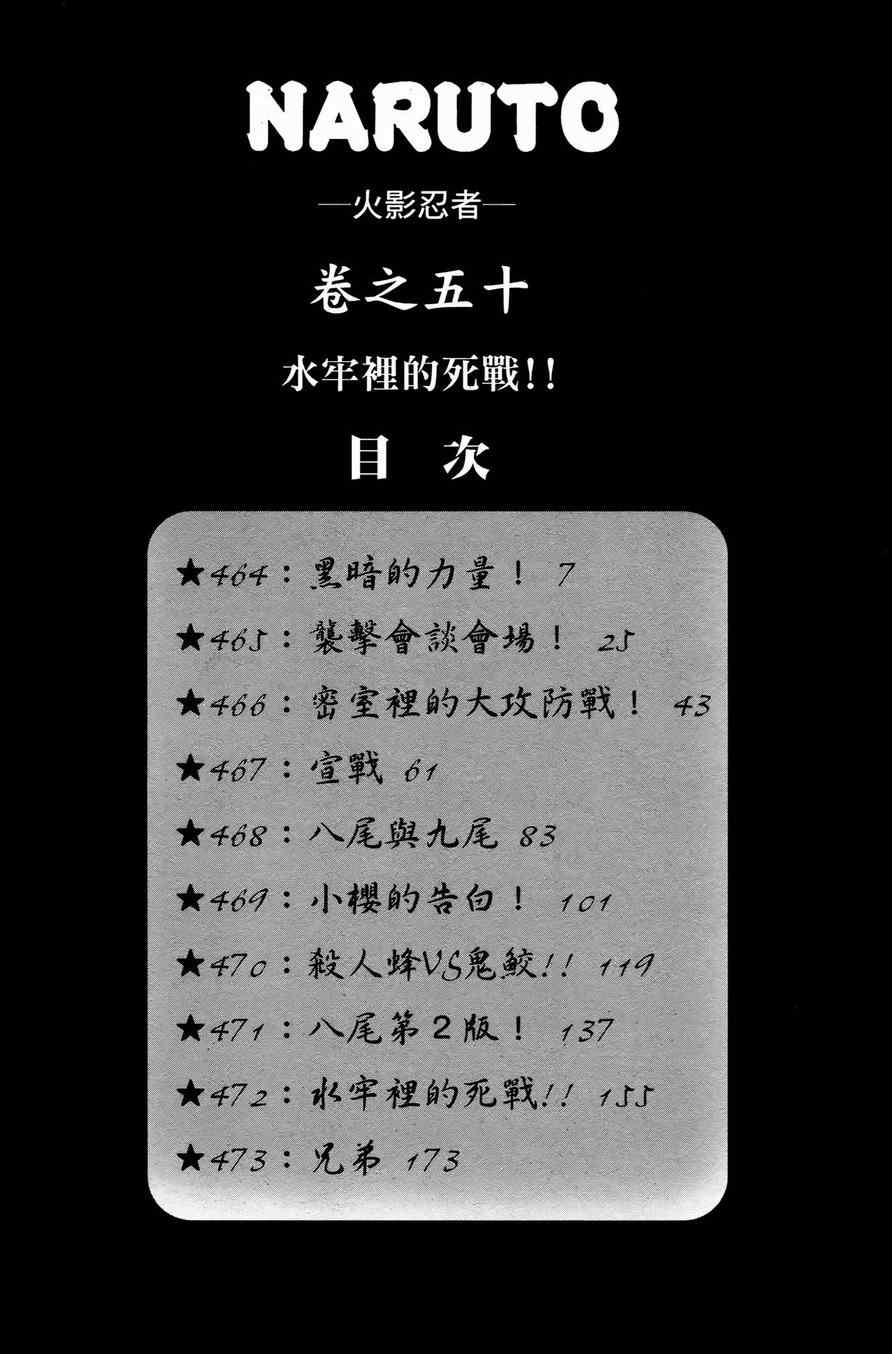 NARUTO
—火影忍者—
卷之五十
水牢裡的死戰!!
目 次
★464：黑暗的力量！ 7
★465：襲擊會談會場！ 25
★466：密室裡的大攻防戰！ 43
★467：宣戰 61
★468：八尾與九尾 83
★469：小櫻的告白！ 101
★470：殺人蜂VS鬼鮫!! 119
★471：八尾第2版！ 137
★472：水牢裡的死戰!! 155
★473：兄弟 173